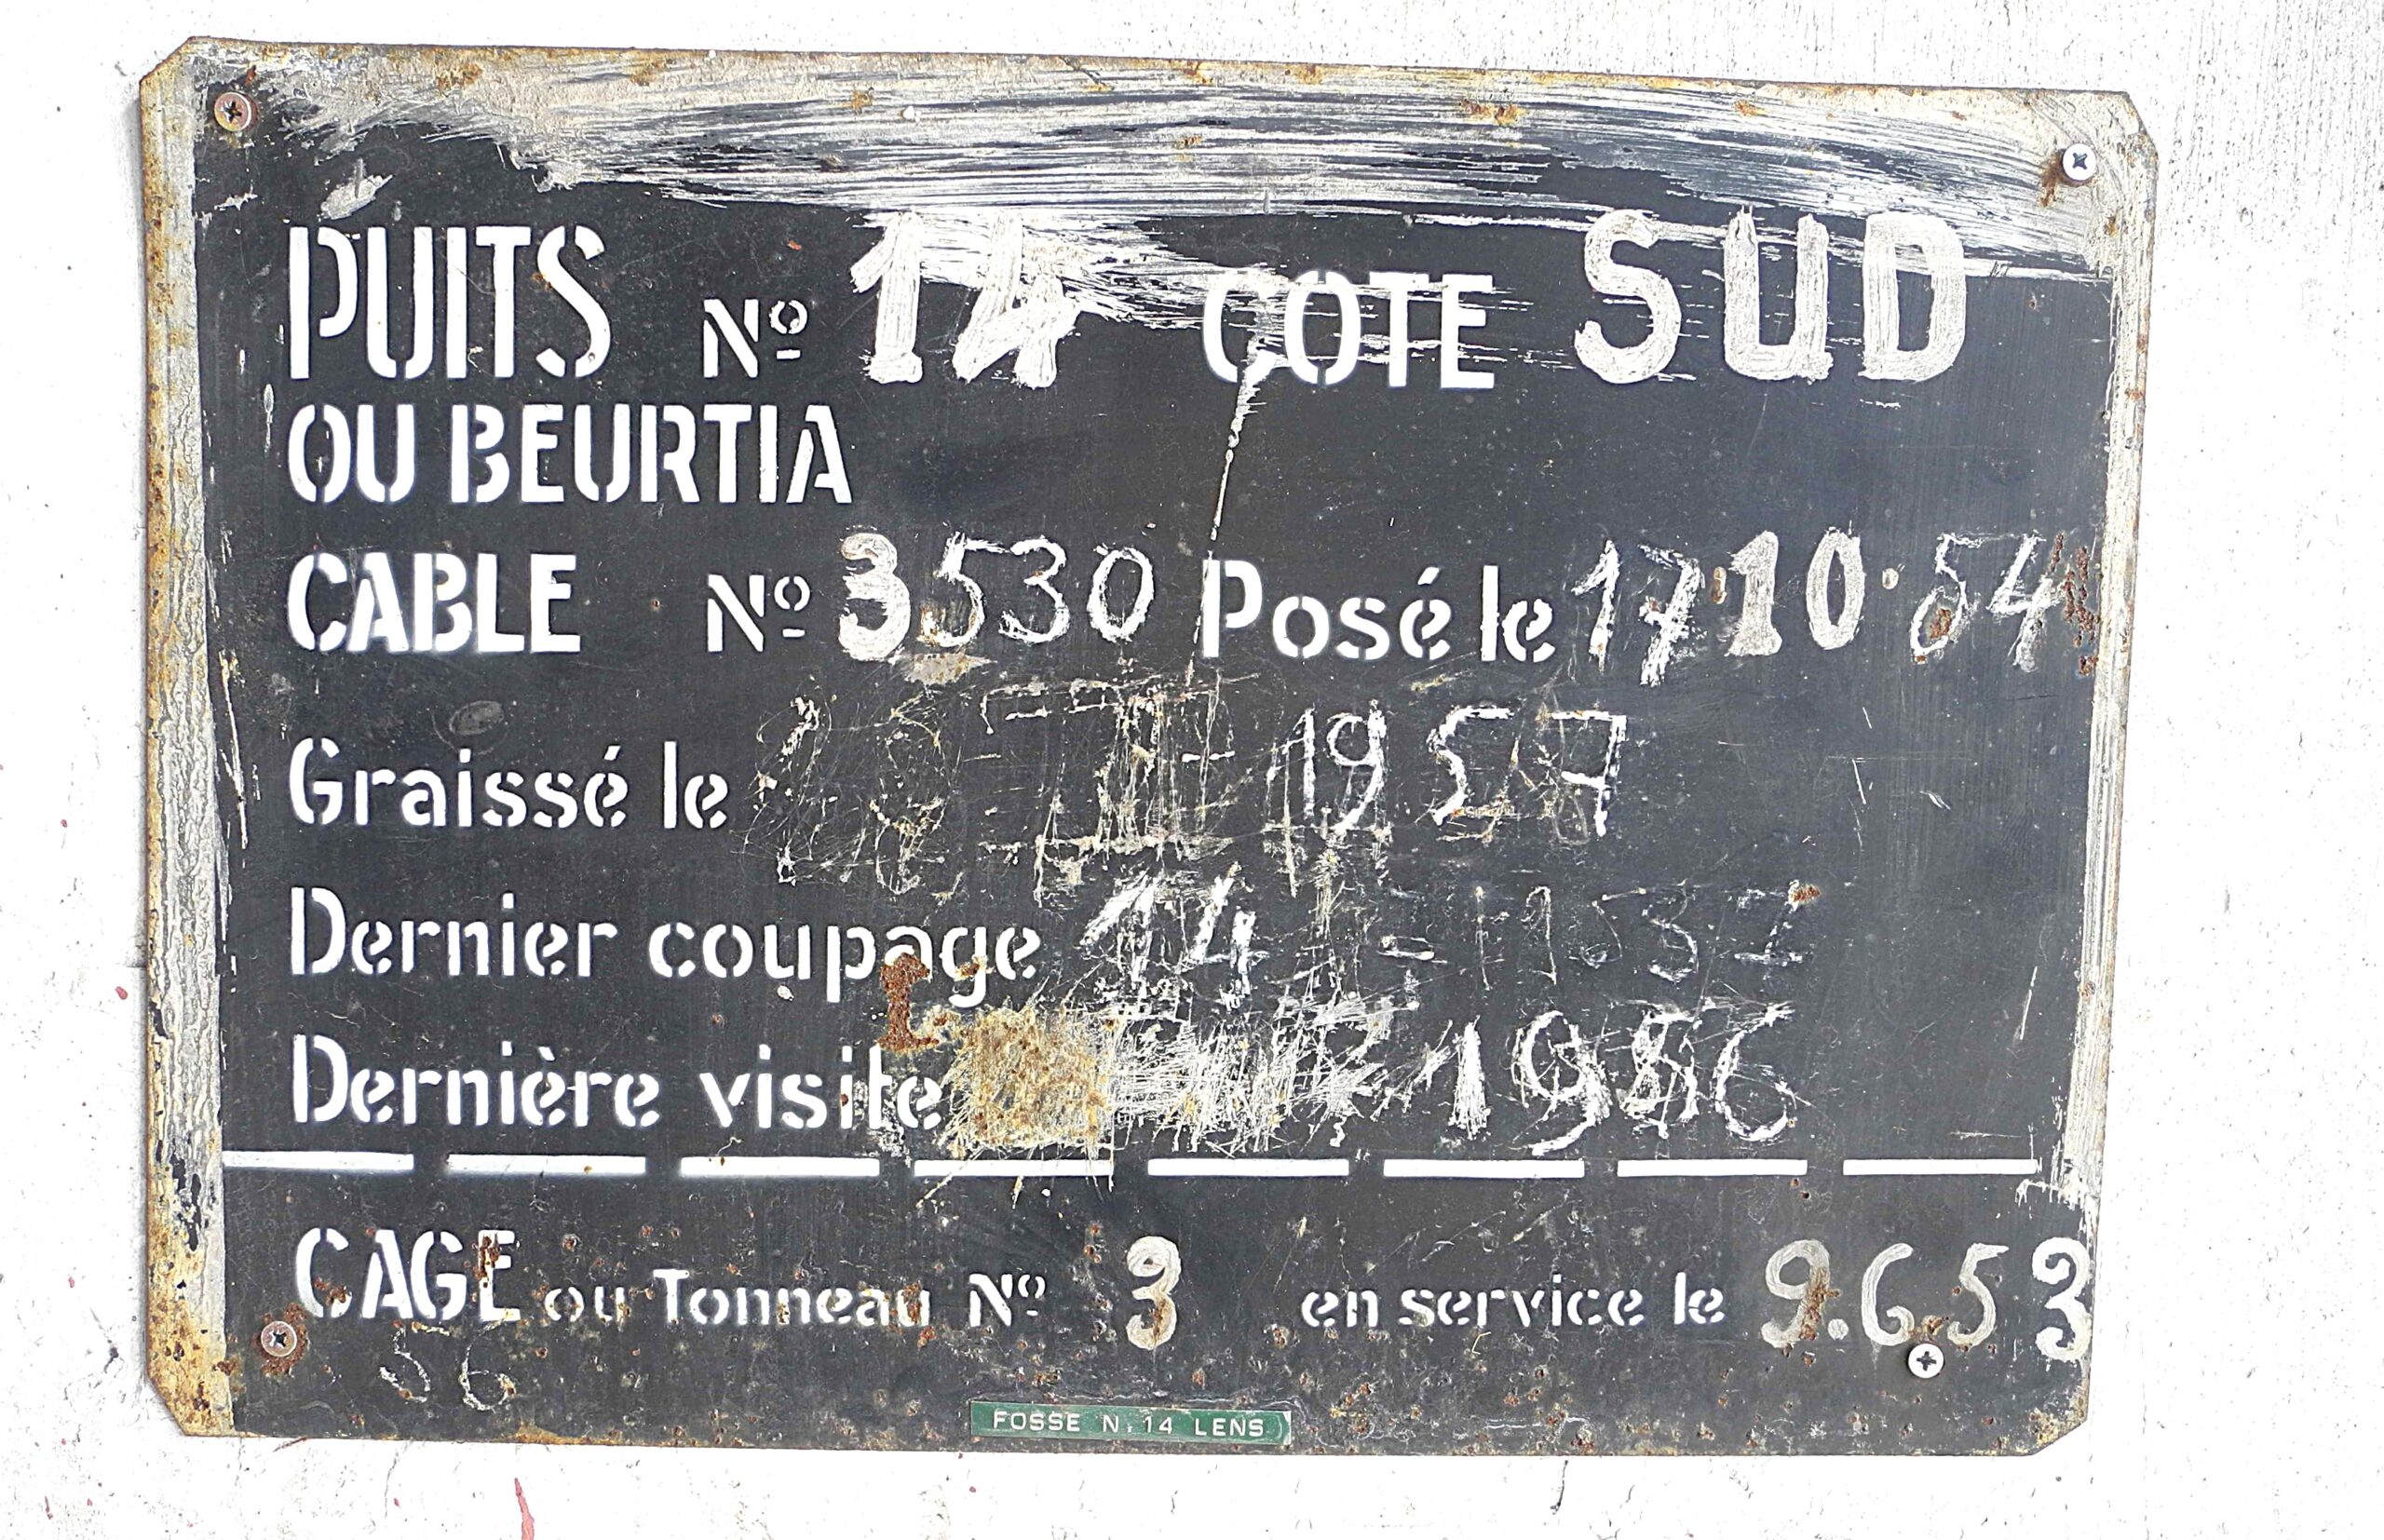 PUITS Nº 14 COTE SUD
OU BEURTIA
CABLE Nº 3530 Posé le 17.10.54
Graissé le 1957
Dernier coupage 14
Dernière visite 1956
CAGE ou Tonneau Nº 3 en service le 9.6.53
56
FOSSE N.14 LENS